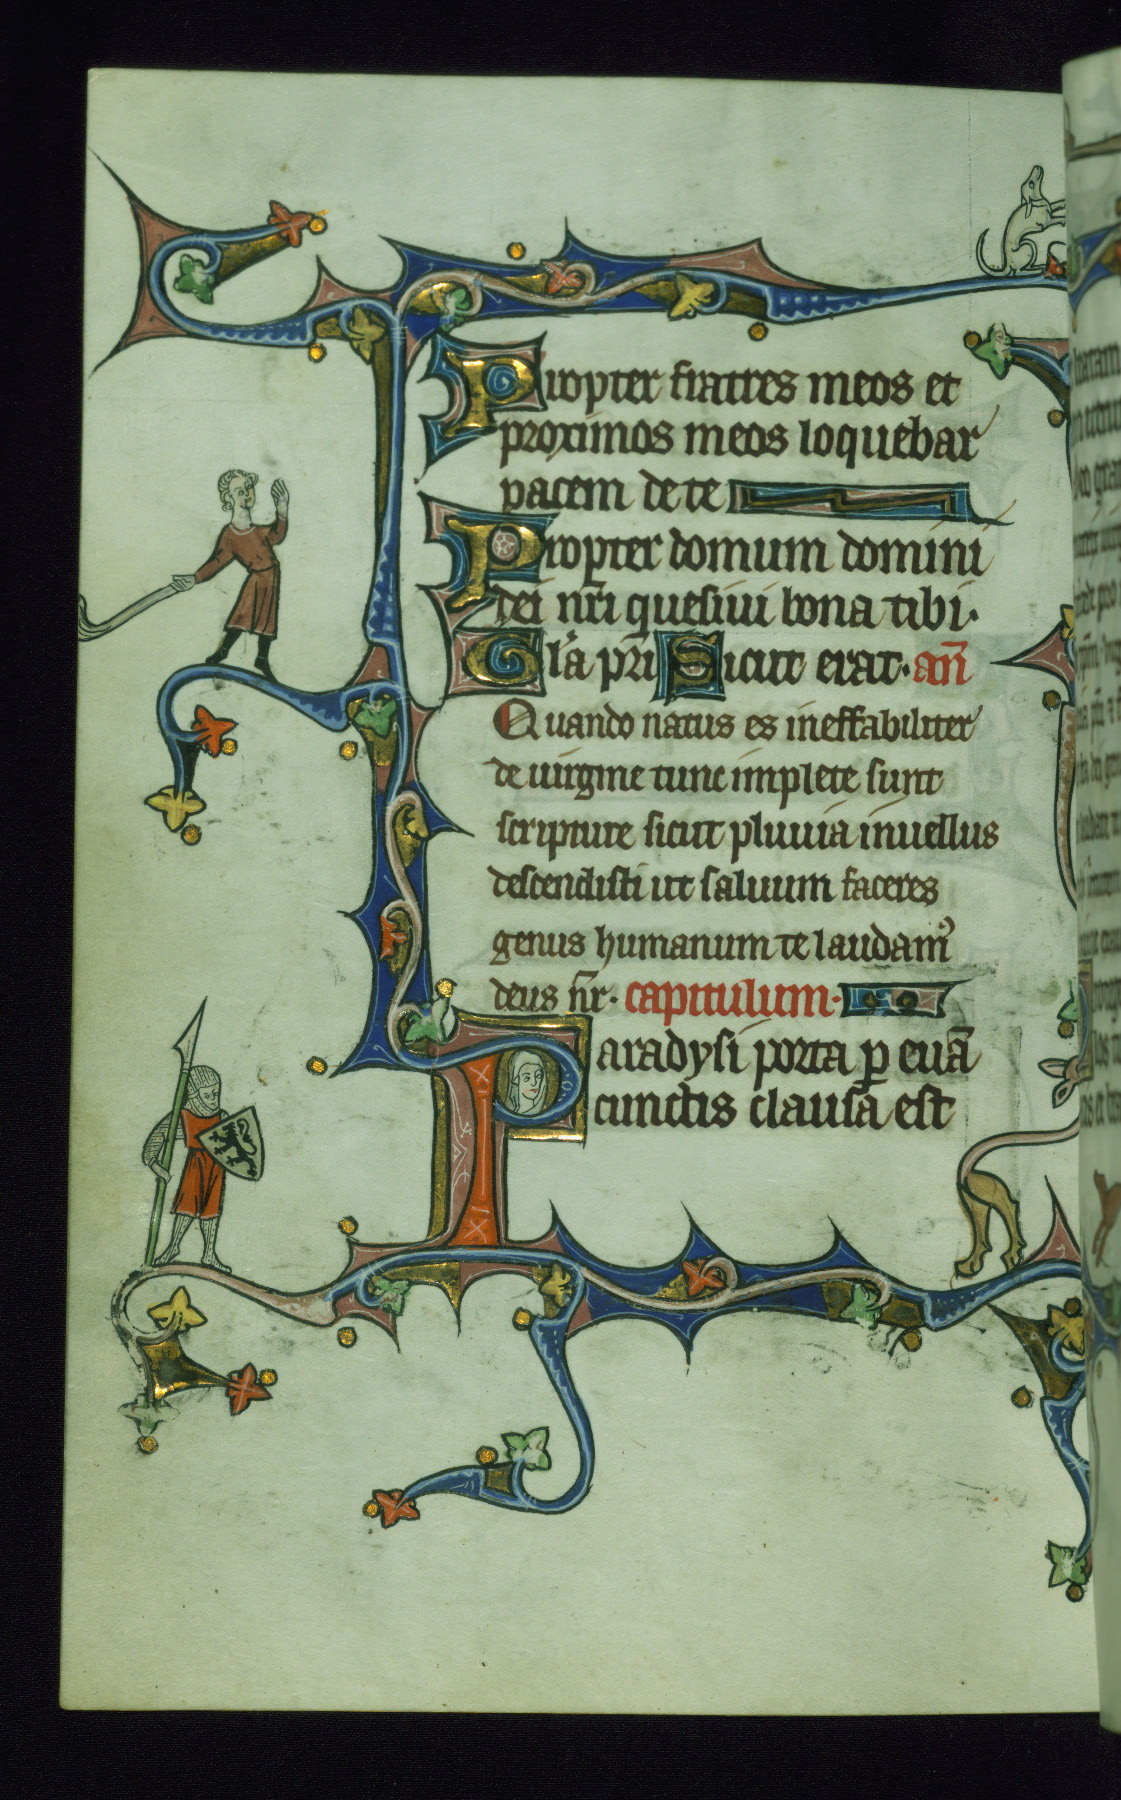 Propter fratres meos et
proximos meos loquebar
pacem de te
Propter domum domini
dei nr̄i quesiui bona tibi·
Gl'a pr̄i Sicut erat· an̄
Quando natus es ineffabiliter
de uirgine tunc implete sunt
scripture sicut pluuia in uellus
descendisti ut saluum faceres
genus humanum te laudam᷒
deus nr̄· capitulum·
Paradysi porta ꝑ euā
cunctis clausa est